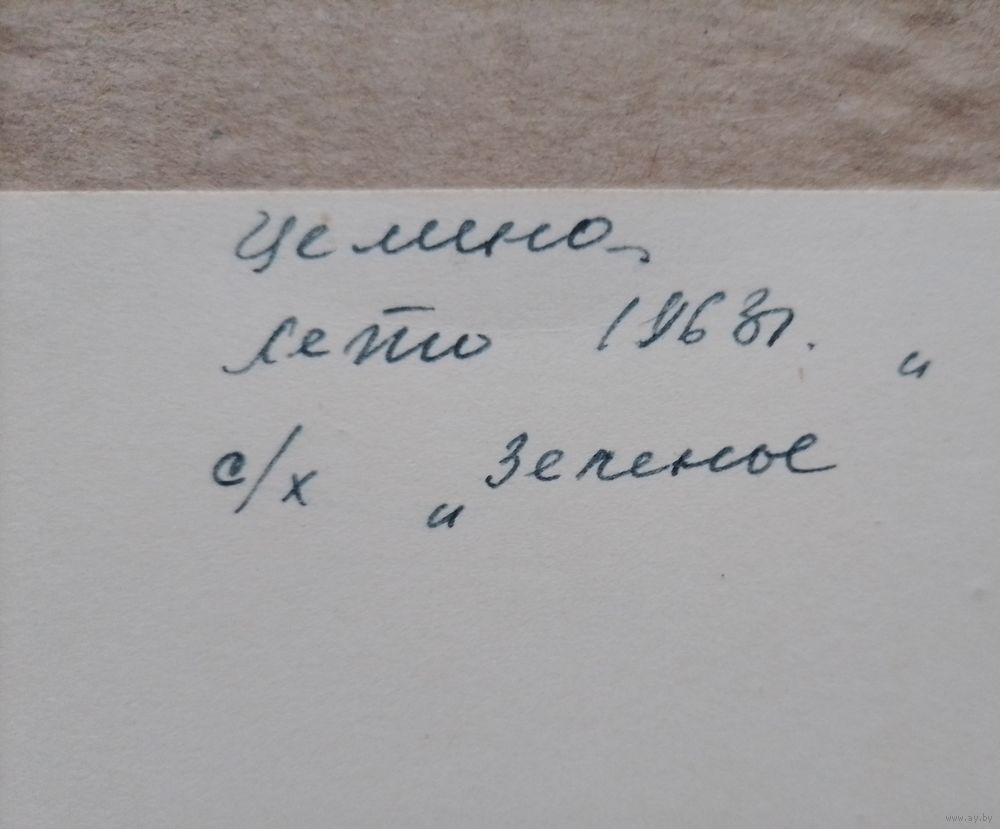 Целина,
лето 1963г.
с/х „Зеленое“
www.ay.by